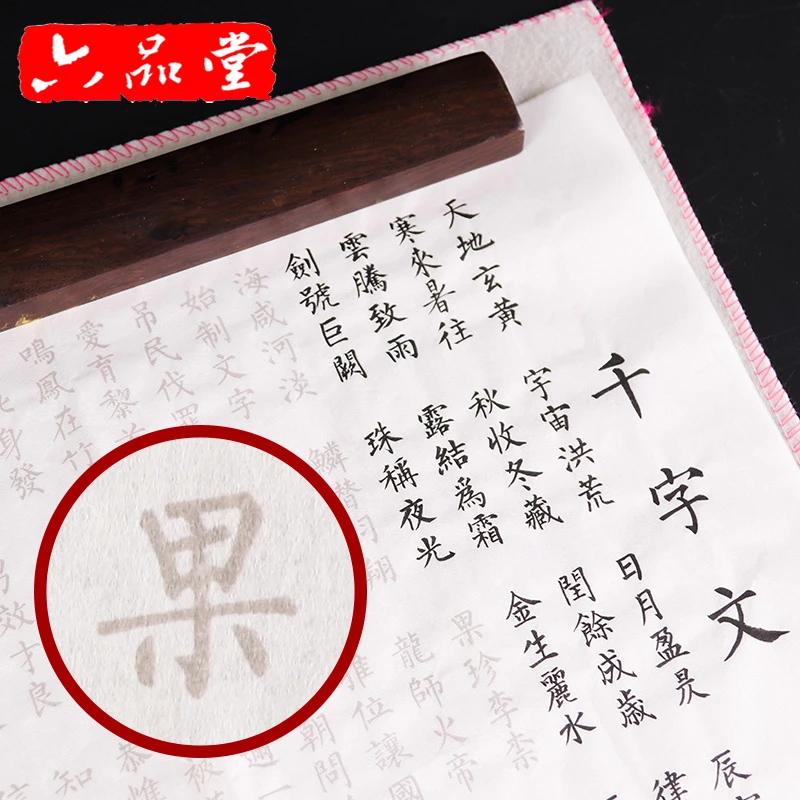 六品堂
千字文
天地玄黃 宇宙洪荒 日月盈昃 辰
寒來暑往 秋收冬藏 閏餘成歲 律
雲騰致雨 露結爲霜 金生麗水
劍號巨闕 珠稱夜光 果珍李柰
海咸河淡 鱗潛羽翔 龍師火帝
始制文字 推位讓國
吊民伐罪 朝問
愛育黎首
鳴鳳在竹 被
身發 恭惟
知
效才良
果